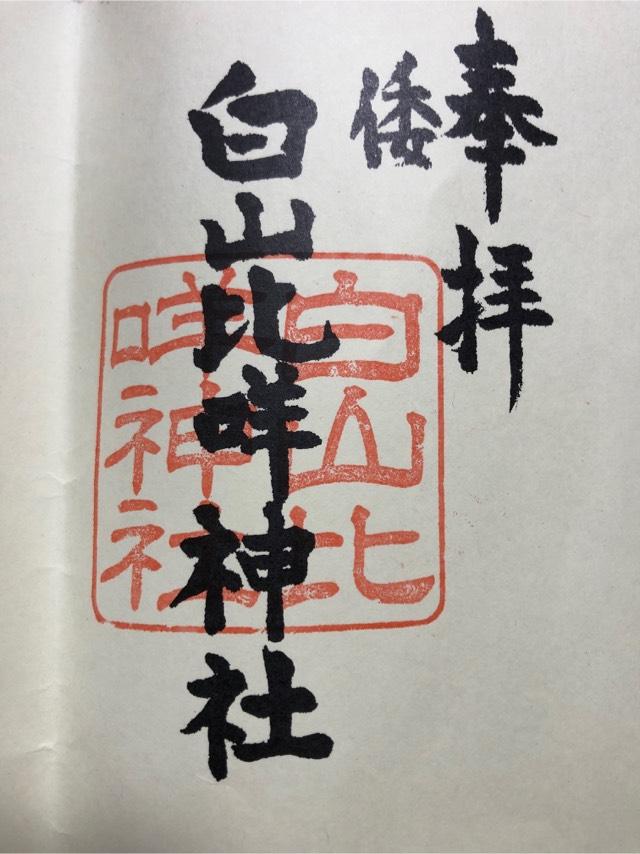 奉拝
倭
白山比咩神社
白山比
咩神社